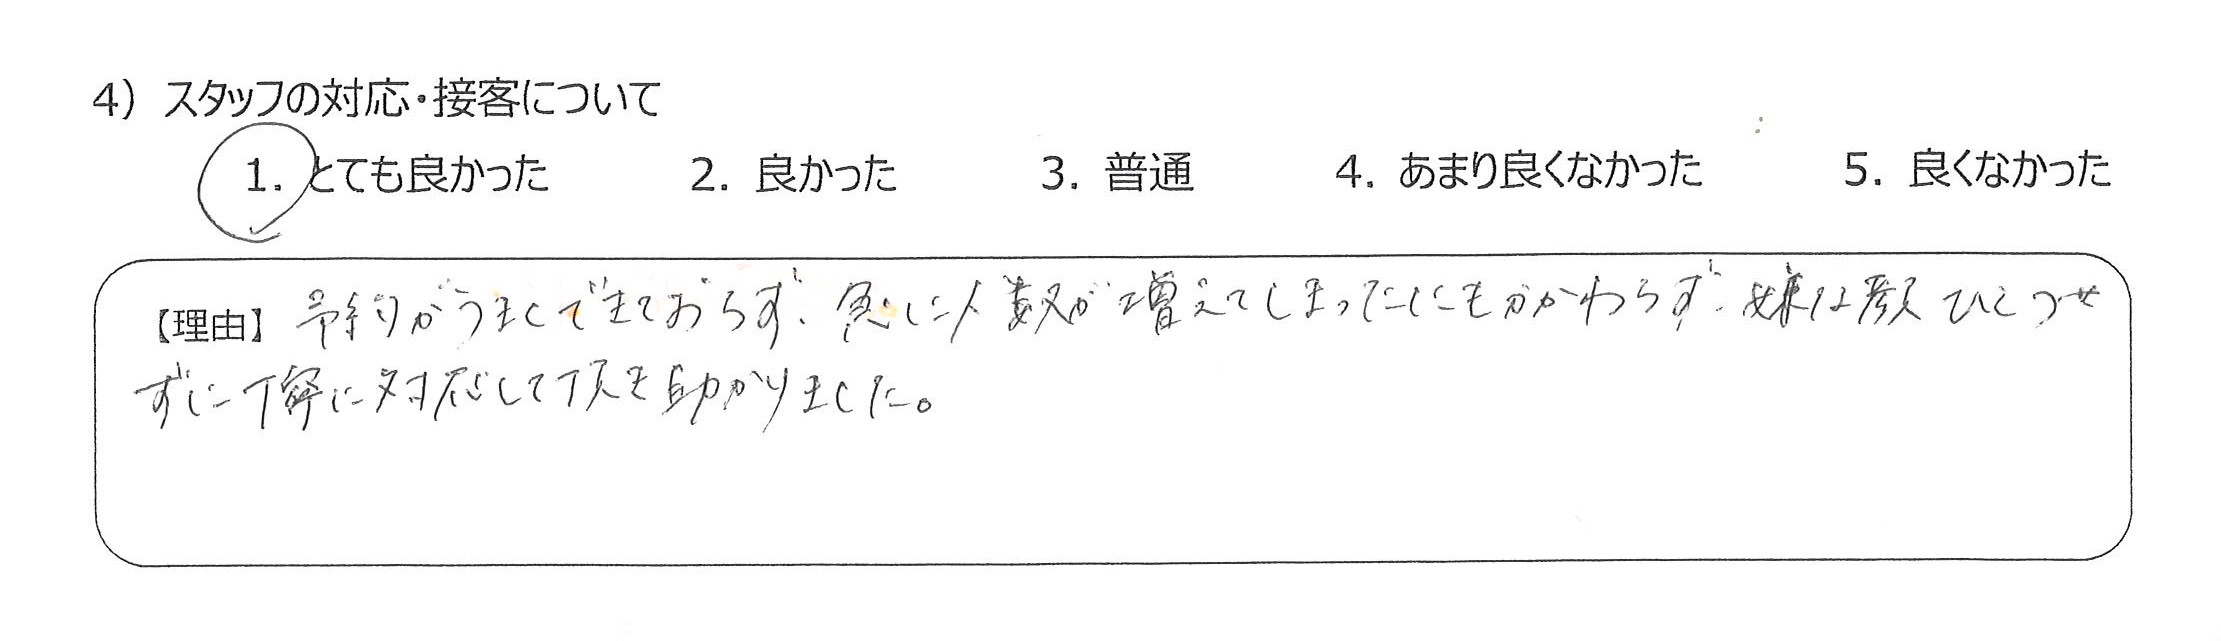 4) スタッフの対応・接客について
1. とても良かった 2. 良かった 3. 普通 4. あまり良くなかった 5. 良くなかった
【理由】 予約がうまくできておらず、急に人数が増えてしまったにもかかわらず、嫌な顔ひとつせ
ずに丁寧に対応して頂き助かりました。